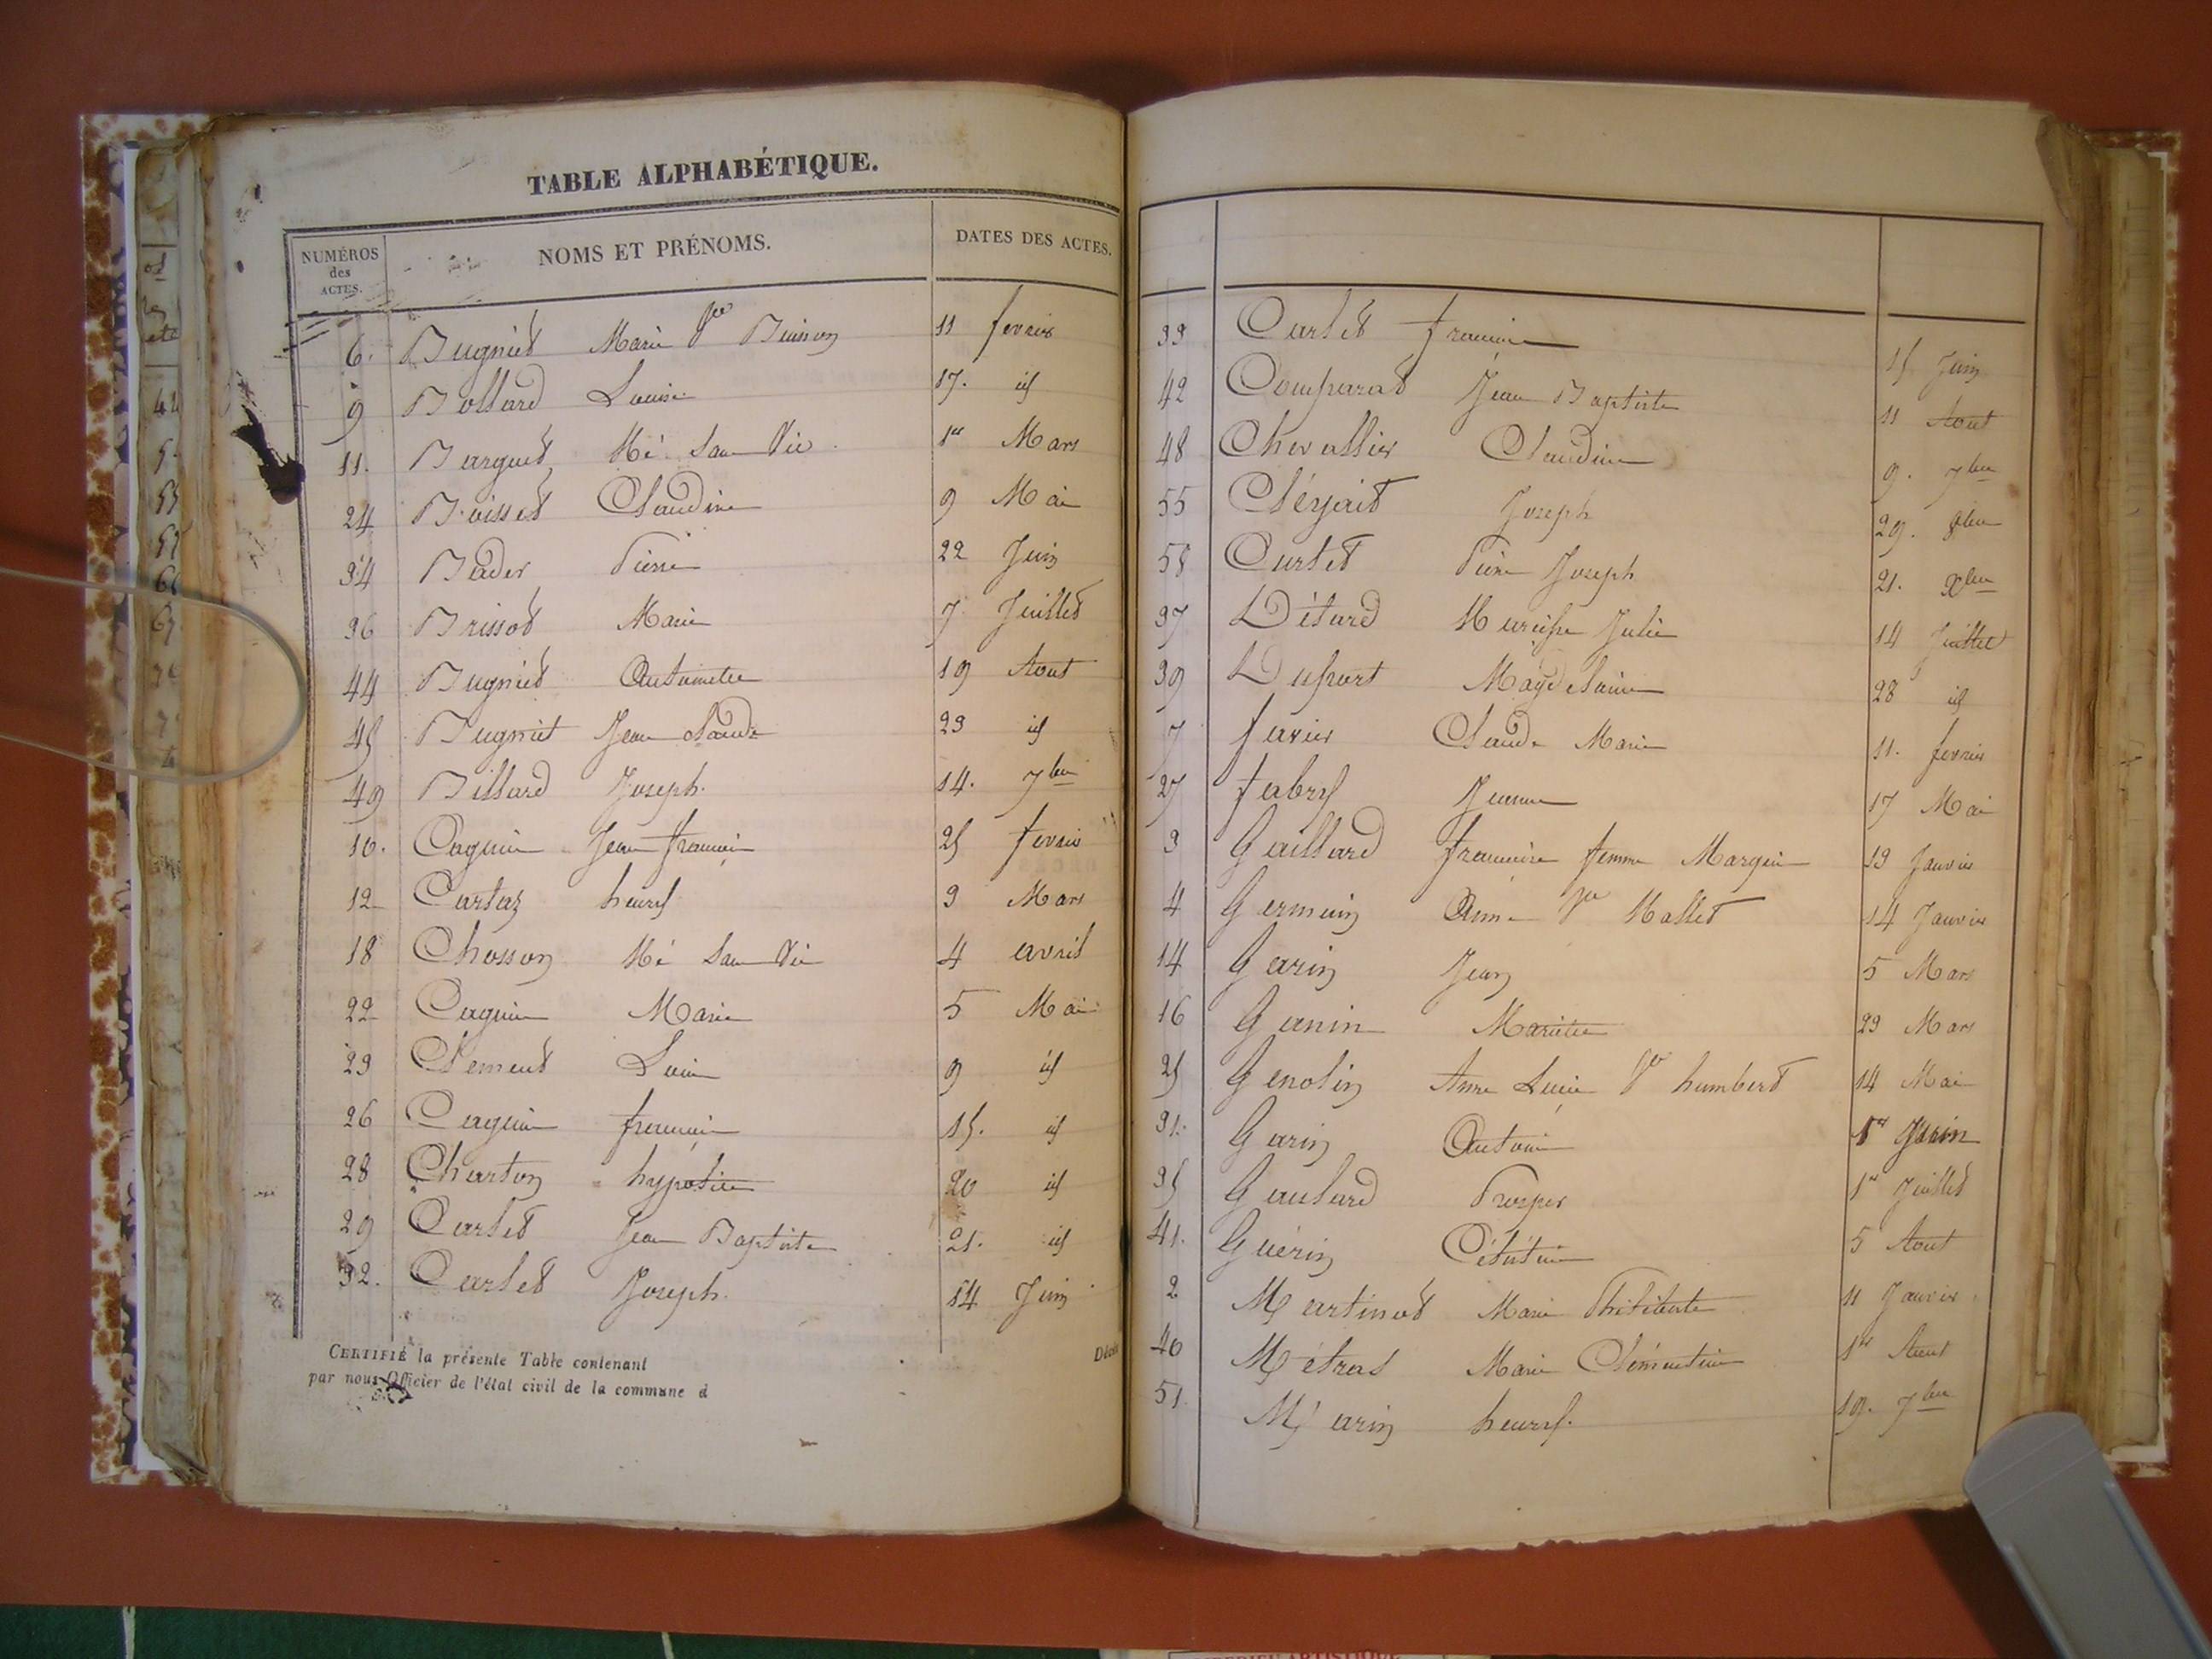 TABLE ALPHABÉTIQUE.
NUMÉROS des ACTES. NOMS ET PRÉNOMS. DATES DES ACTES.
6. Bugniet Marie Vve Buisson 11 fevrier
9 Bollard Louise 17. id
11. Bargues Né Sans Vie 1er Mars
24 Boisset Claudine 9 Mai
34 Bader Pierre 22 Juin
36 Brissot Marie 7 Juillet
44 Bugniet Antoinette 19 Aout
45 Bugniet Jean Claude 23 id
49 Billard Joseph. 14. 7bre
10. Caguin Jean françois 25 fevrier
12 Cartaz henry 3 Mars
18 Chosson Né Sans Vie 4 avril
22 Caguin Marie 5 Mai
23 Clement Louis 9 id
26 Caguin françois 15. id
28 Charton hypolite 20 id
29 Carlet Jean Baptiste 21. id
32. Carlet Joseph. 14 Juin
CERTIFIÉ la présente Table contenant
par nous Officier de l'état civil de la commune d
33 Curlet françois 15 Juin
42 Comparat Jean Baptiste 11 Aout
48 Chevallier Claudine 9. 7bre
55 Joseph 29. 8bre
58 Curtet Pierre Joseph 21. Xbre
37 Létard Julie 14 Juillet
39 Dupart Magdelaine 28 id
7 favier Claude Marie 11. fevrier
27 fabry Jeanne 17 Mai
3 Gaillard françoise femme Margin 13 Janvier
4 Germain Anne Vve Mallet 14 Janvier
14 Garin Jean 5 Mars
16 Ganin Mariette 23 Mars
25 Genolin Anne Lucie Ve humbert 14 Mai
31. Garin Antoine 1er Juin
35 Gaulard Prosper 1er Juillet
41. Guérin Célestine 5 Aout
2 Martinot Marie Philiberte 11 Janvier
40 Métral Marie Clémentine 1er Aout
51 Marin henry. 19. 7bre